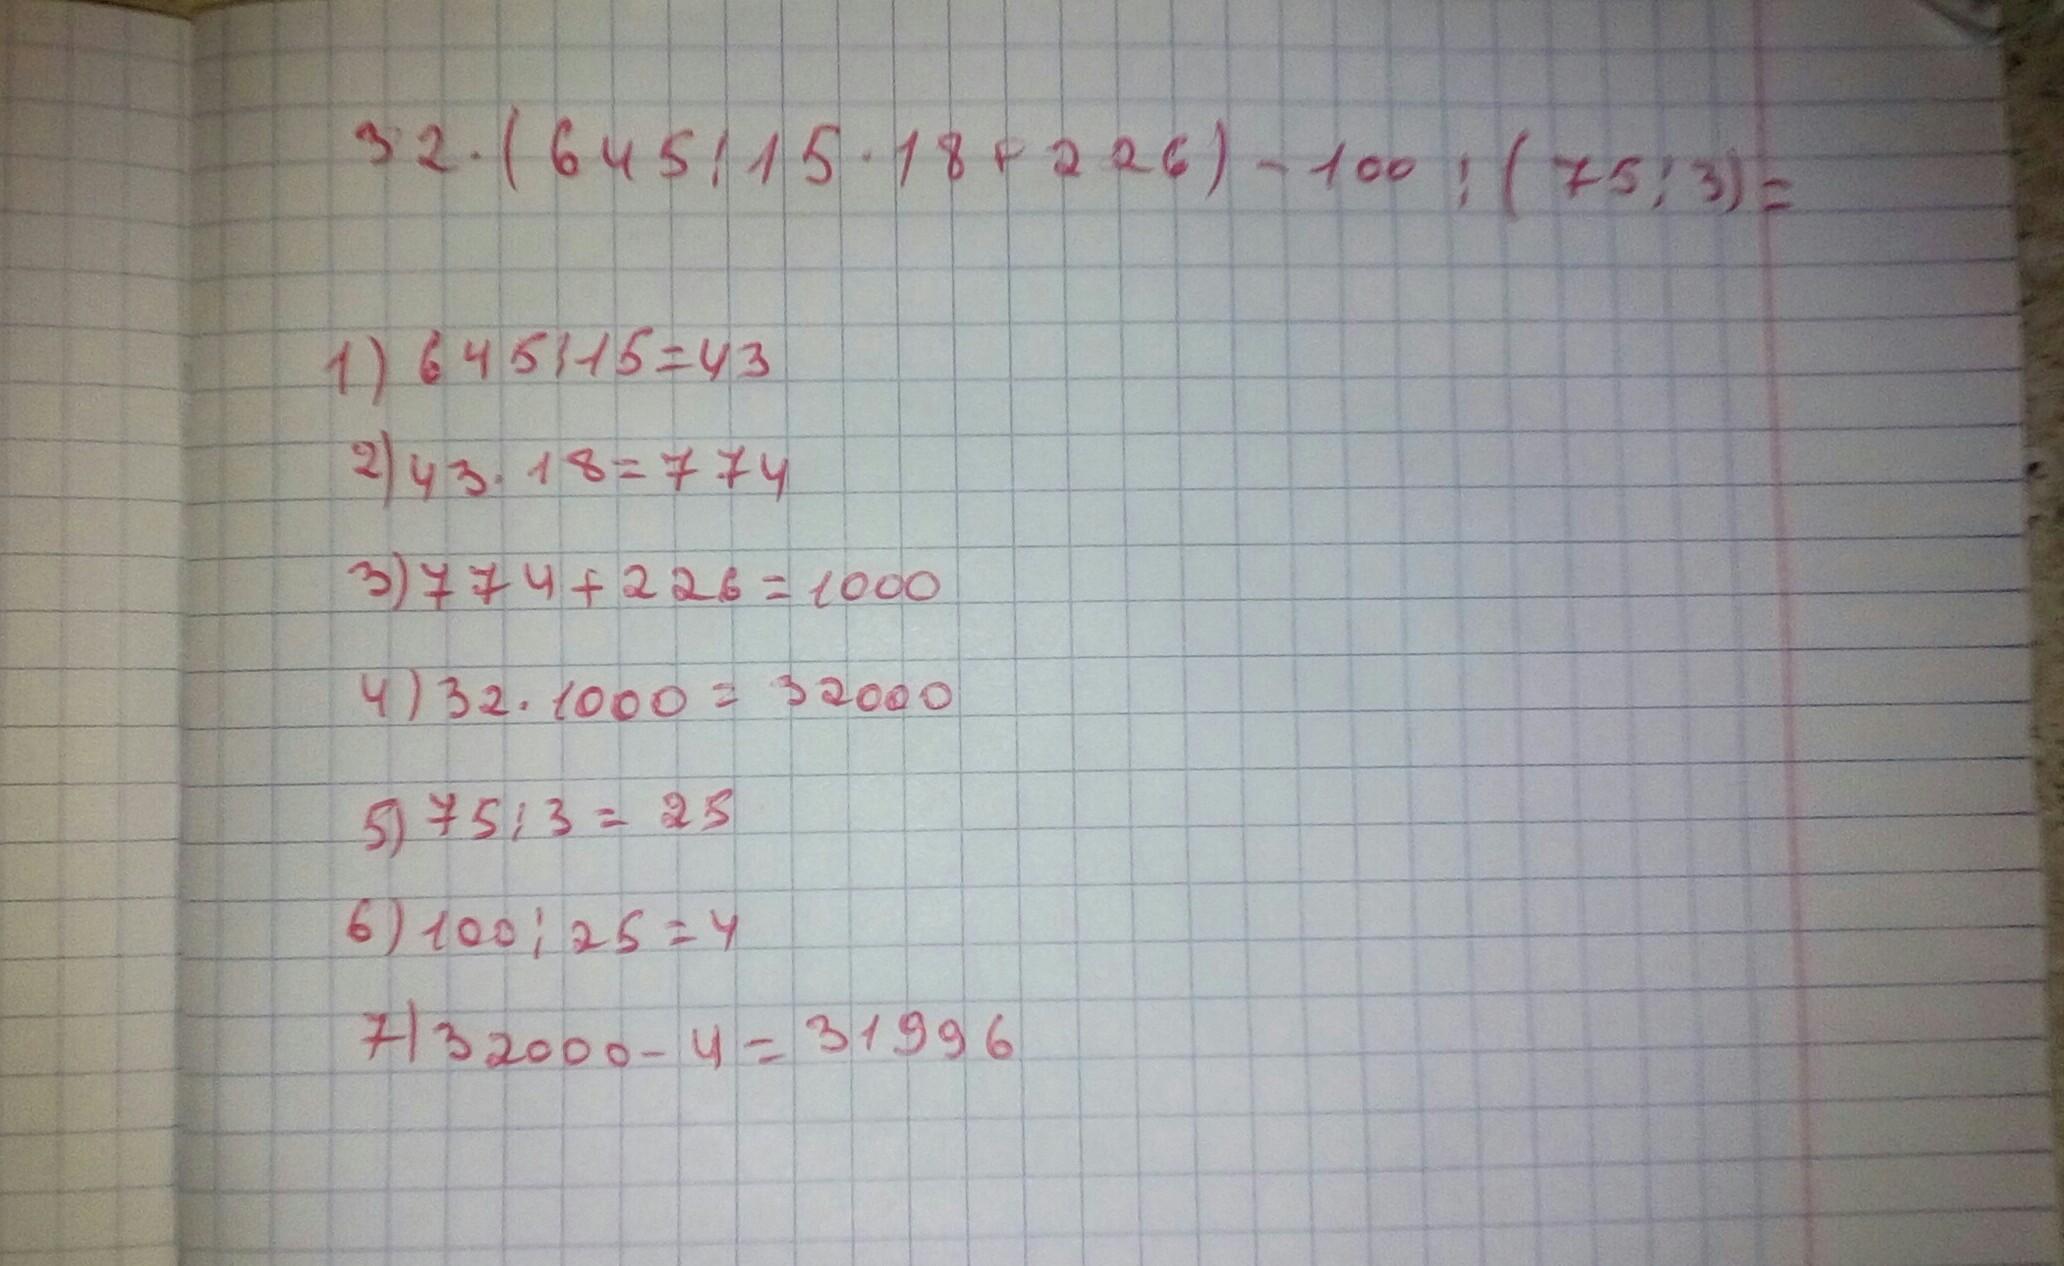 32·(645:15·18+226)-100:(75:3)=
1) 645:15=43
2) 43·18=774
3) 774+226=1000
4) 32·1000=32000
5) 75:3=25
6) 100:25=4
7) 32000-4=31996